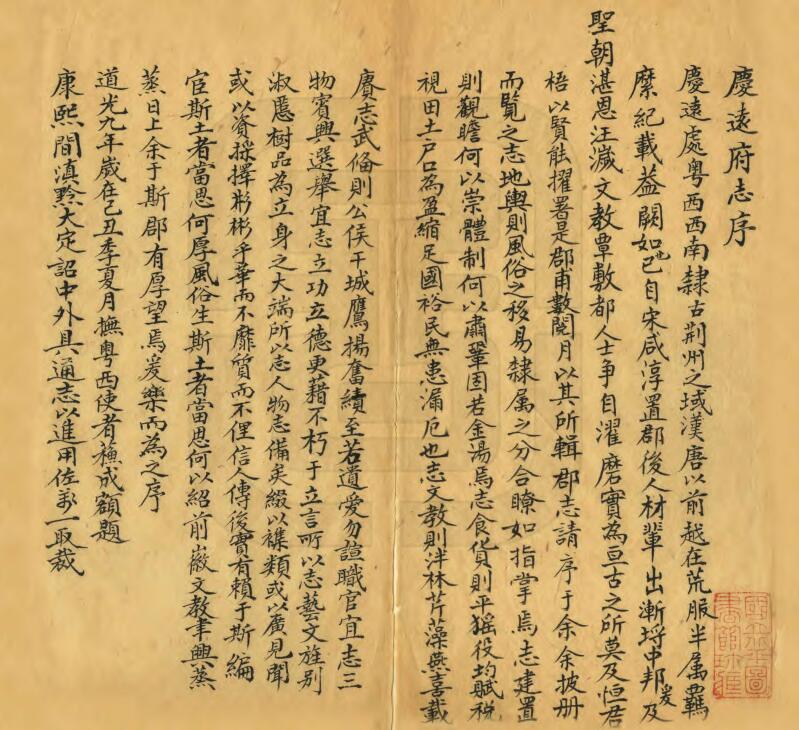 慶遠府志序
慶遠處粵西西南隸古荆州之域漢唐以前越在荒服半属羈
縻紀載蓋闕如也已自宋咸淳置郡後人材輩出漸埒中邦爰及
聖朝湛恩汪濊文教覃敷都人士爭自濯磨實為亘古之所莫及恒君
梧以賢能擢署是郡甫數閱月以其所輯郡志請序于余余披册
而覽之志地輿則風俗之移易隸属之分合瞭如指掌焉志建置
則觀瞻何以崇體制何以肅鞏固若金湯焉志食貨則平徭役均賦税
視田土户口為盈縮足國裕民無患漏卮也志文教則泮林芹藻燕喜載
賡志武俻則公侯干城鷹揚奮績至若遺愛勿諠職官宜志三
物賓興選舉宜志立功立德更藉不朽于立言所以志藝文旌别
淑慝樹品為立身之大端所以志人物志備矣綴以襍類或以廣見聞
或以資採擇彬彬乎華而不靡質而不俚信今傳後實有賴于斯編
宦斯土者當思何厚風俗生斯土者當思何以紹前徽文教聿興蒸
蒸日上余于斯郡有厚望焉爰樂而為之序
道光九年歲在己丑季夏月撫粵西使者蘓成額題
康熙間滇黔大定詔中外具通志以進用佐一取裁